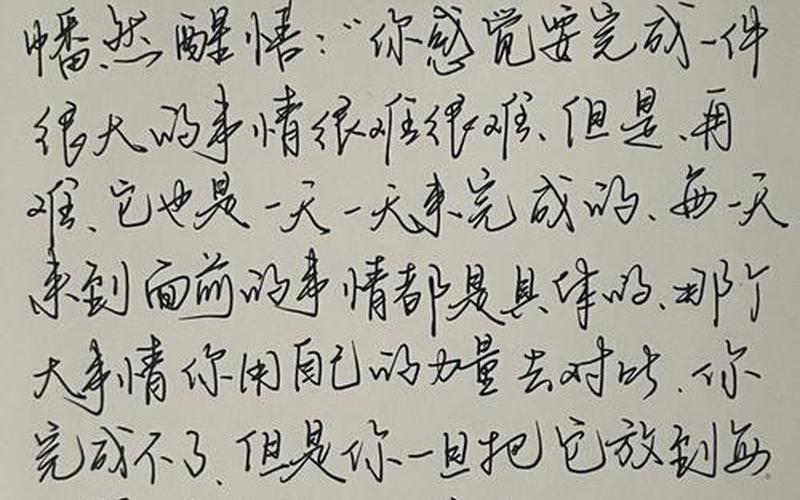 幡然醒悟：“你感觉要完成一件
很大的事情很难很难、但是、再
难、它也是一天一天来完成的、每一天
来到面前的事情都是具体的、那个
大事情你用自己的力量去对比、你
完成不了、但是你一旦把它放到每